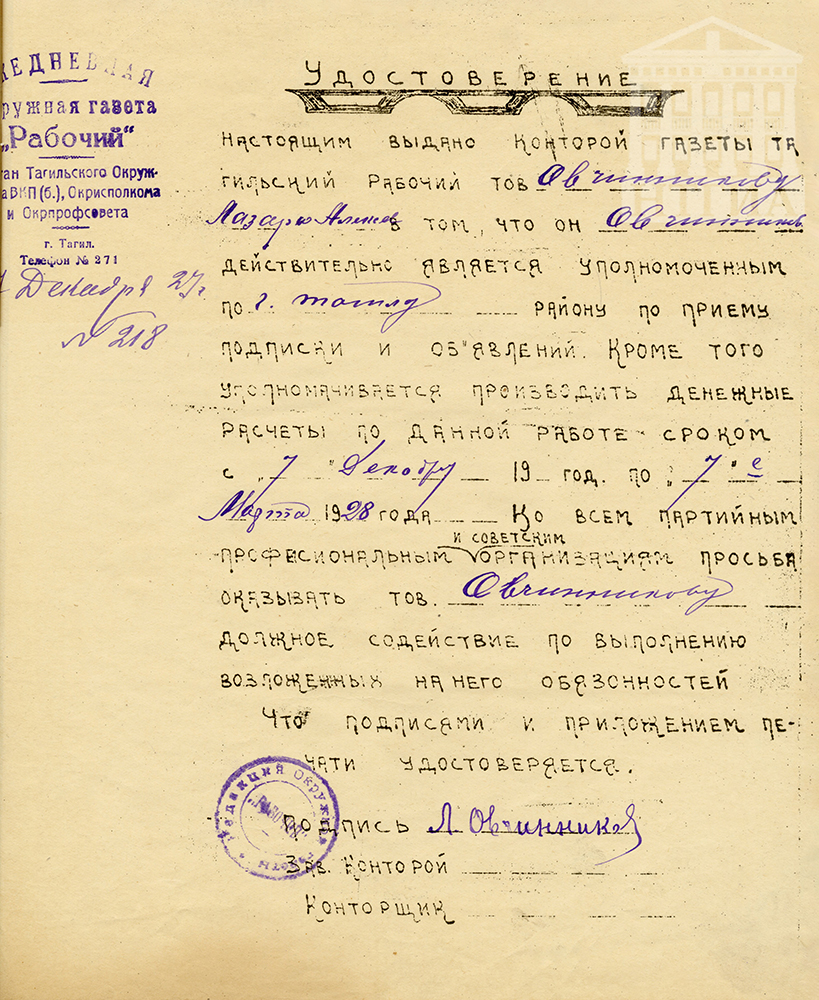 ЖЕДНЕВНАЯ
ружная газета
„Рабочий“
ган Тагильского Окруж-
а ВКП(б.), Окрисполкома
и Окрпрофсовета
г. Тагил.
Телефон № 271
7 Декабря 27 г.
№ 218
УДОСТОВЕРЕНИЕ
НАСТОЯЩИМ ВЫДАНО КОНТОРОЙ ГАЗЕТЫ ТА
ГИЛЬСКИЙ РАБОЧИЙ ТОВ Овчинникову
Лазарю Алексев В ТОМ, ЧТО ОН Овчинников
ДЕЙСТВИТЕЛЬНО ЯВЛЯЕТСЯ УПОЛНОМОЧЕННЫМ
ПО г. тагилу РАЙОНУ ПО ПРИЕМУ
ПОДПИСКИ И ОБ"ЯВЛЕНИЙ. КРОМЕ ТОГО
УПОЛНОМАЧИВАЕТСЯ ПРОИЗВОДИТЬ ДЕНЕЖНЫЕ
РАСЧЕТЫ ПО ДАННОЙ РАБОТЕ СРОКОМ
С „7" Декабру 19 ГОД. ПО „7" е
Марта 1928 ГОДА КО ВСЕМ ПАРТИЙНЫМ
И СОВЕТСКИМ
ПРОФЕСИОНАЛЬНЫМ ОРГАНИЗАЦИЯМ ПРОСЬБА
ОКАЗЫВАТЬ ТОВ. Овчинникову
ДОЛЖНОЕ СОДЕЙСТВИЕ ПО ВЫПОЛНЕНИЮ
ВОЗЛОЖЕННЫХ НА НЕГО ОБЯЗОННОСТЕЙ
ЧТО ПОДПИСЯМИ И ПРИЛОЖЕНИЕМ ПЕ-
ЧАТИ УДОСТОВЕРЯЕТСЯ.
Редакция Окружн
„РАБОЧИЙ"
ПОДПИСЬ Л Овчинников
ЗАВ. КОНТОРОЙ
КОНТОРЩИК